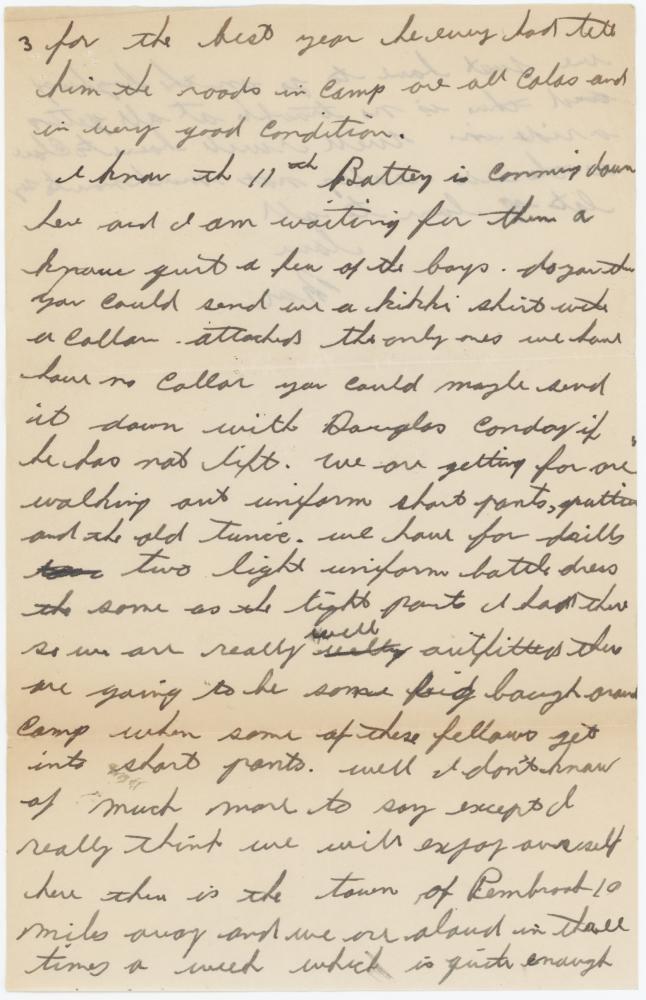 3 for the best year he every had tell
him the roads in camp are all Calas and
in very good Condition.
I know th 11th Battey is comming down
here and I am waiting for them a
know quit a few of the boys. do you
you could send me a kikki shirt with
a Collar attached the only ones we have
have no Collar you could mayle send
it down with Douglas if
he has not lift. we are getting for are
walking out uniform short pants, puttie
and the old tunic. we have for drills
two light uniform battle dress
the same as the tight pants I had there
so we are really well outfitted
are going to be some around
Camp when some of these fellows get
into short pants. well I don't know
of much more to say except I
really think we will enjoy
here then is the town of Pembroat 10
miles away and we are aloud in three
times a week which is quite enough